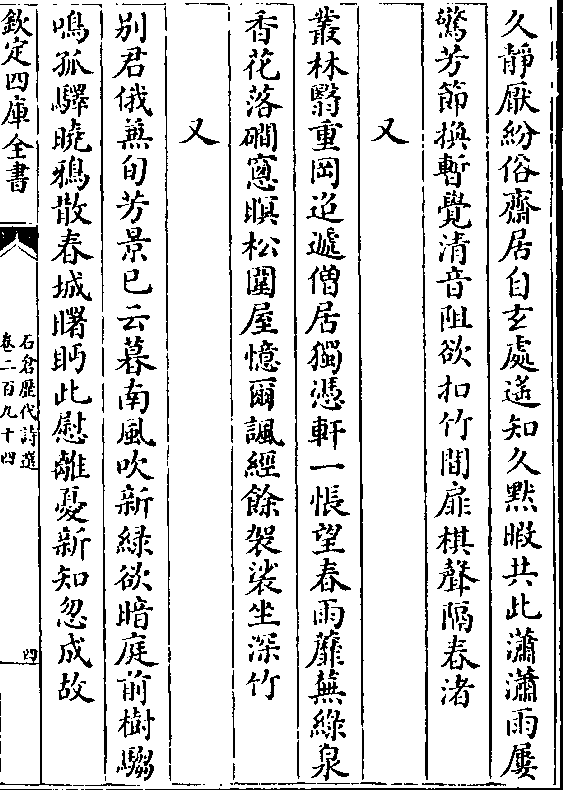 久靜厭紛俗齋居自玄處遥知久黙暇共此瀟瀟雨屢
驚芳節換暫覺清音阻欲扣竹間扉棋聲隔春渚
又
叢林翳重岡迢遞僧居獨憑軒一悵望春雨蘼蕪綠泉
香花落磵窓暝松圍屋憶爾諷經餘袈裟坐深竹
又
别君俄兼旬芳景已云暮南風吹新綠欲暗庭前樹騶
鳴孤驛曉鴉散春城曙眄此慰離憂新知忽成故
欽定四庫全書
石倉歴代詩選
卷二百九十四
四